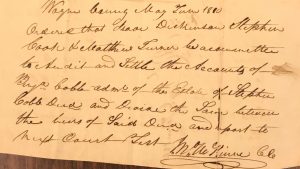 Wayne County May Term 18
Orders that Isaac Dickinson Stephen
Cook & Matthew Turner be a committee
to Audit and Settle the Accounts of
Benja Cobb admr. of the Estate of Stephen
Cobb Decd and Divide the Same between
the heirs of Said Decd and report to
Next Court Test